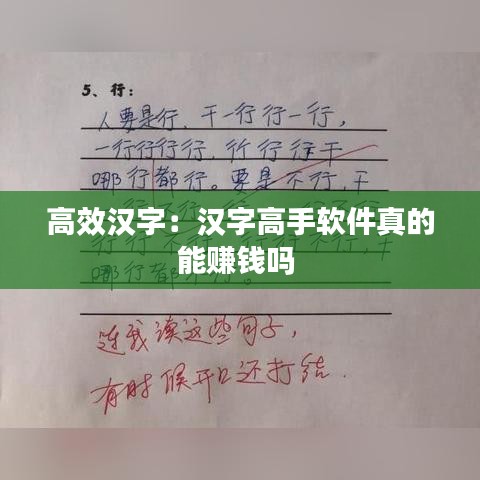 5、行：
人要是行，干一行行一行，
一行行行行，行行行干
哪行都行。要是不行，干
高效汉字：汉字高手软件真的
能赚钱吗
哪行都不行。
连我读这些句子，
有时候开口还打结.